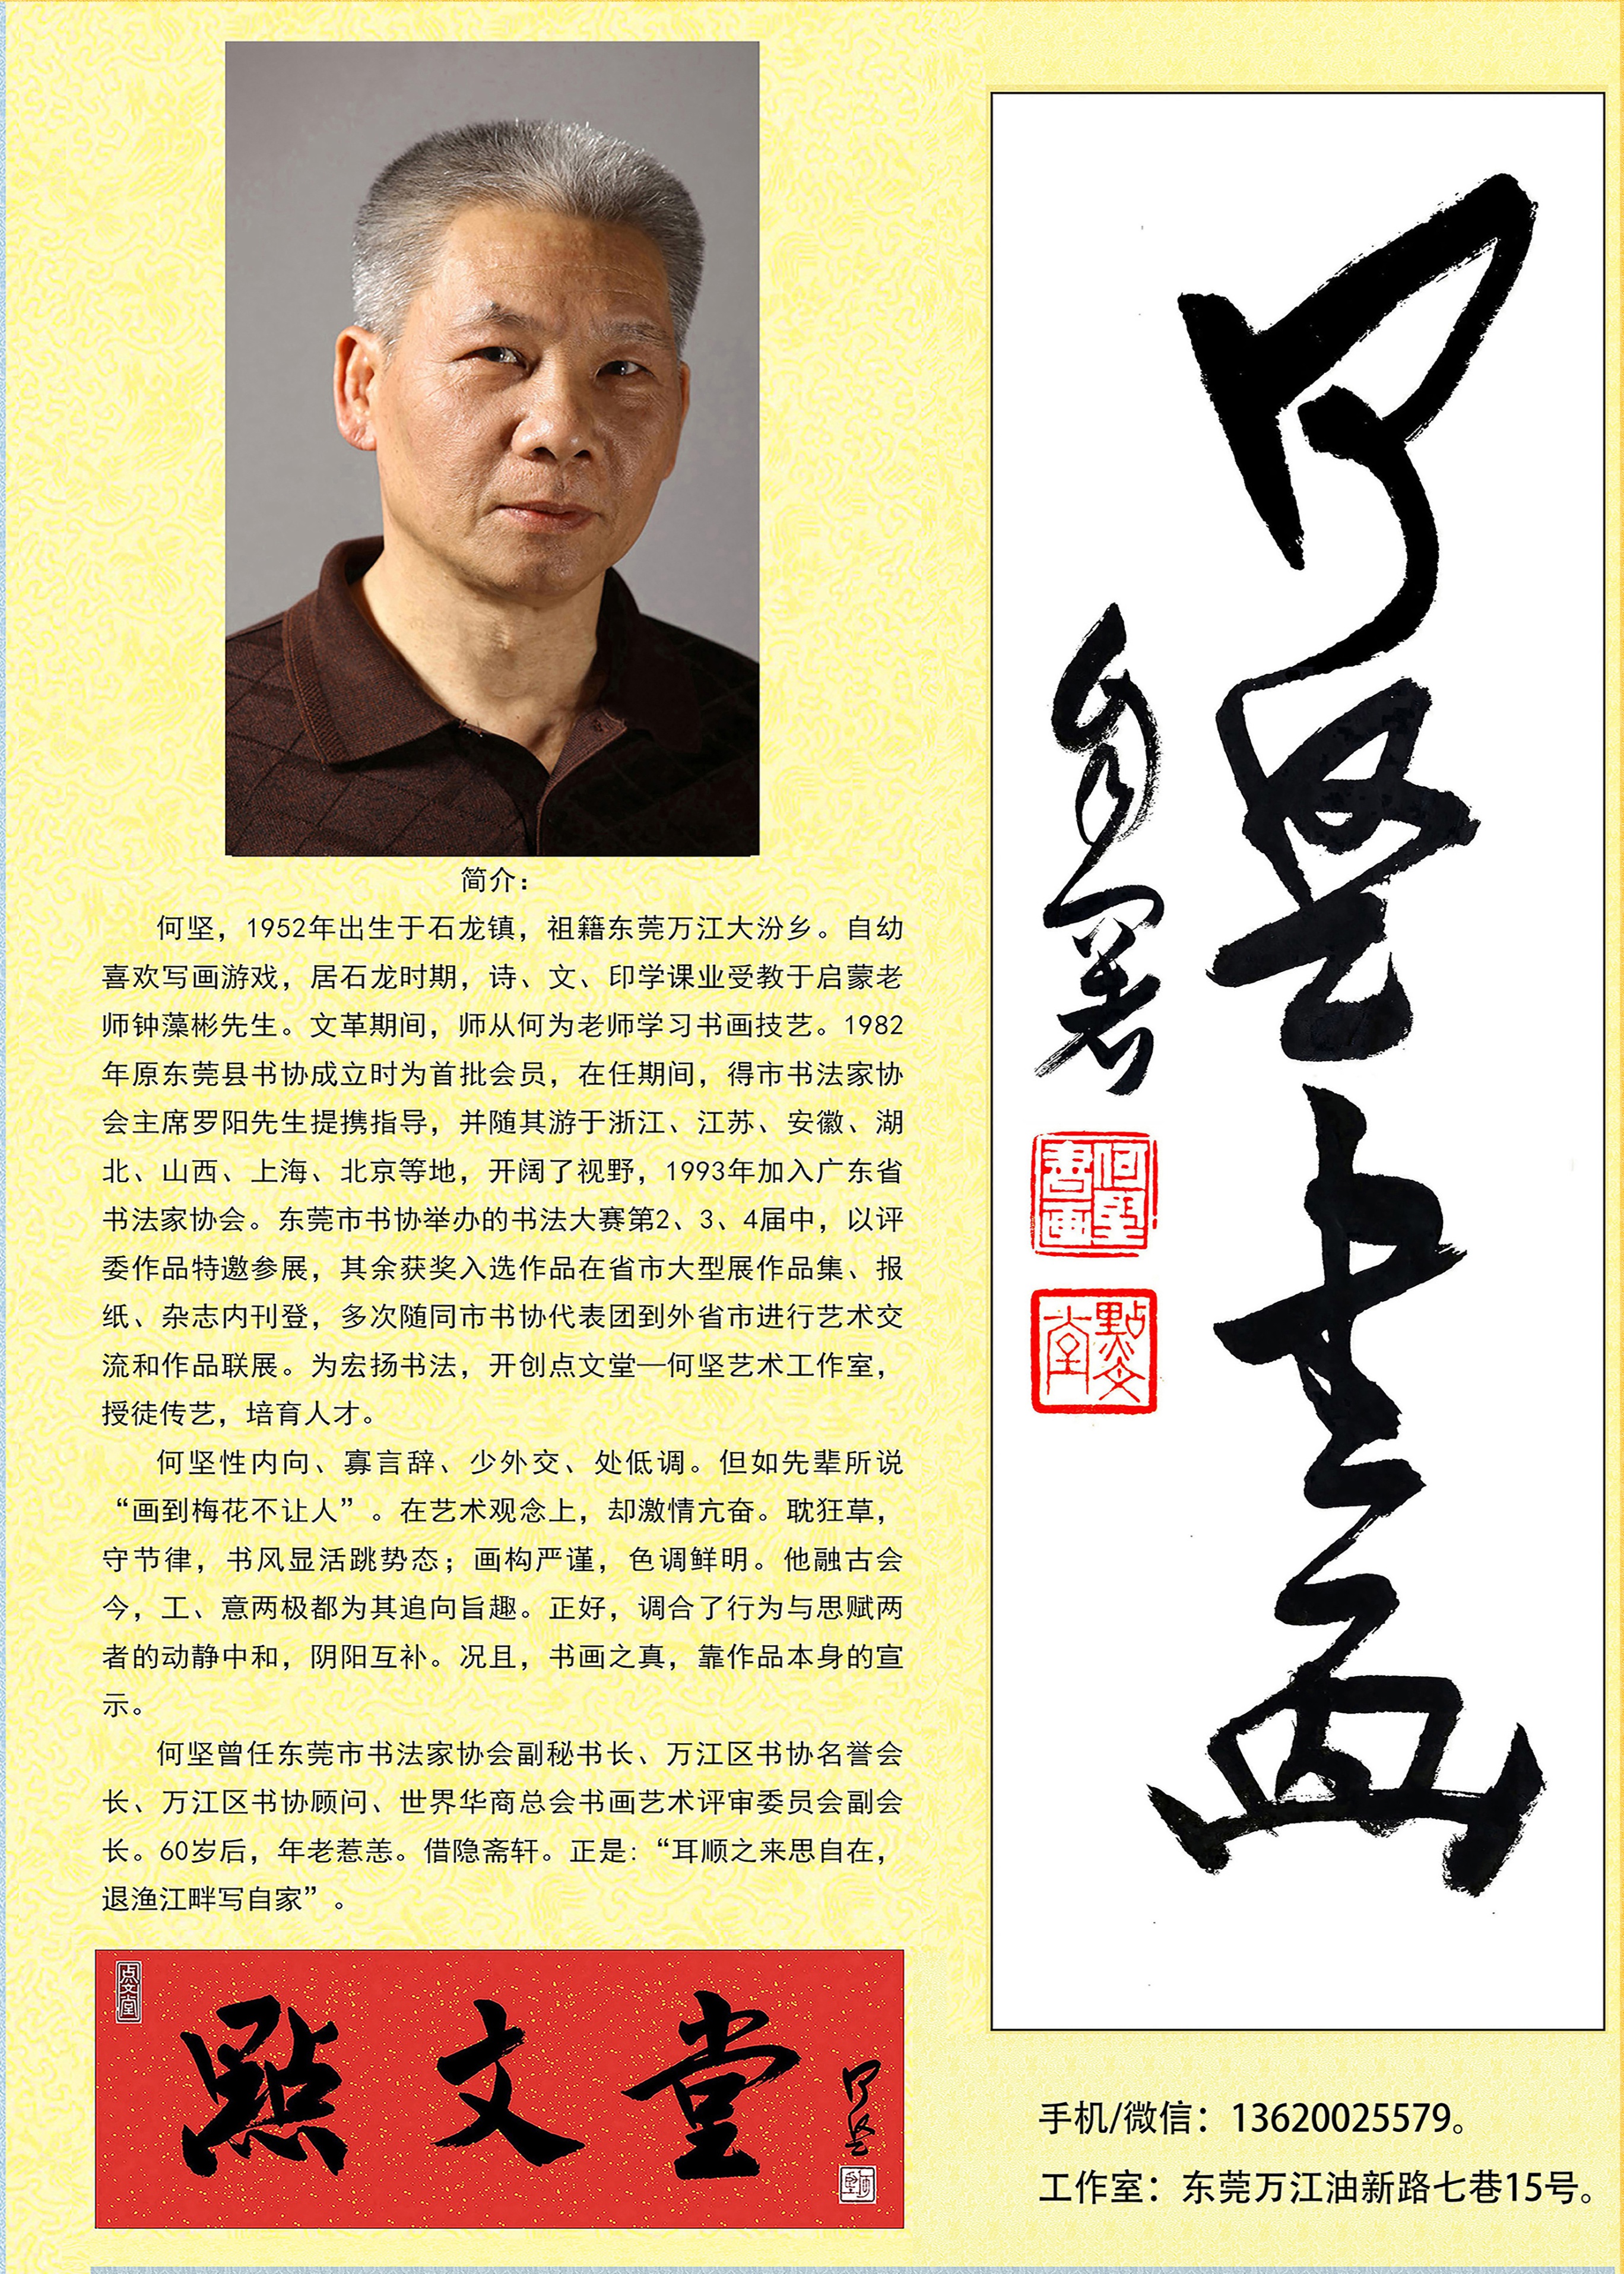 简介：
何坚，1952年出生于石龙镇，祖籍东莞万江大汾乡。自幼
喜欢写画游戏，居石龙时期，诗、文、印学课业受教于启蒙老
师钟藻彬先生。文革期间，师从何为老师学习书画技艺。1982
年原东莞县书协成立时为首批会员，在任期间，得市书法家协
会主席罗阳先生提携指导，并随其游于浙江、江苏、安徽、湖
北、山西、上海、北京等地，开阔了视野，1993年加入广东省
书法家协会。东莞市书协举办的书法大赛第2、3、4届中，以评
委作品特邀参展，其余获奖入选作品在省市大型展作品集、报
纸、杂志内刊登，多次随同市书协代表团到外省市进行艺术交
流和作品联展。为宏扬书法，开创点文堂—何坚艺术工作室，
授徒传艺，培育人才。
何坚性内向、寡言辞、少外交、处低调。但如先辈所说
“画到梅花不让人”。在艺术观念上，却激情亢奋。耽狂草，
守节律，书风显活跳势态；画构严谨，色调鲜明。他融古会
今，工、意两极都为其追向旨趣。正好，调合了行为与思赋两
者的动静中和，阴阳互补。况且，书画之真，靠作品本身的宣
示。
何坚曾任东莞市书法家协会副秘书长、万江区书协名誉会
长、万江区书协顾问、世界华商总会书画艺术评审委员会副会
长。60岁后，年老惹恙。借隐斋轩。正是：“耳顺之来思自在，
退渔江畔写自家”。
点文堂
點文堂
何坚
何坚书画
自署
何堅書画
點文堂
手机/微信：13620025579。
工作室：东莞万江油新路七巷15号。